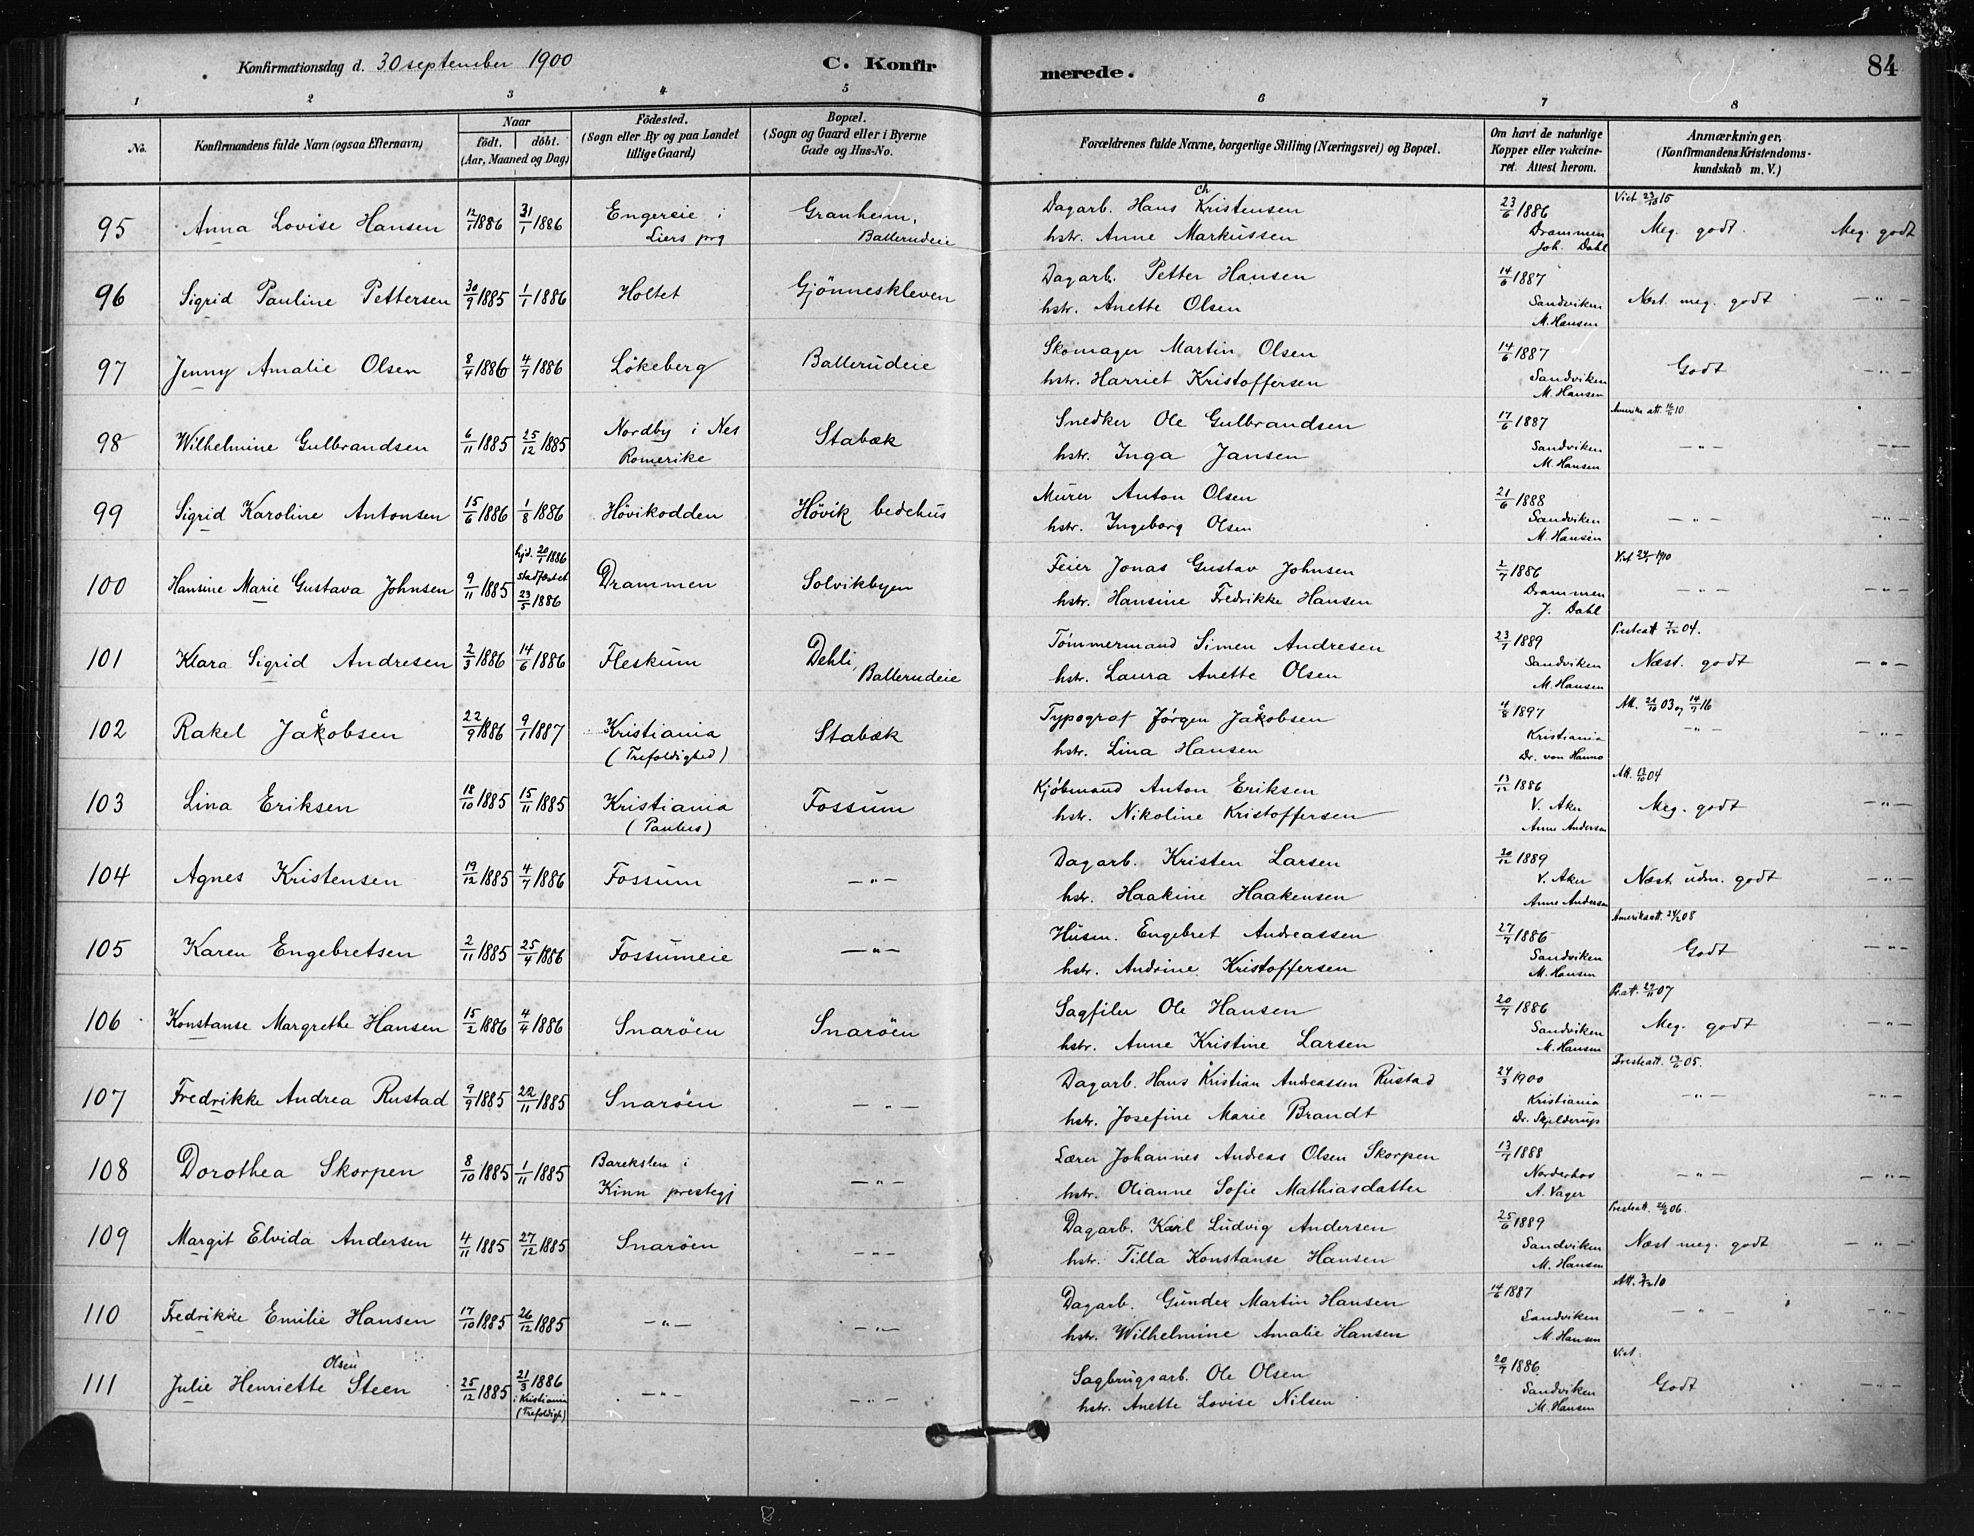 Konfirmationsdag d. 30 september 1900
C. Konfirmerede.
84
1 2 3 4 5 6 7 8
No.
Konfirmandens fulde Navn (ogsaa Efternavn)
Naar
födt. döbt.
(Aar, Maaned og Dag)
Födested.
(Sogn eller By og paa Landet tillige Gaard)
Bopæl.
(Sogn og Gaard eller i Byerne Gade og Hus-No.
Forældrenes fulde Navne, borgerlige Stilling (Næringsvei) og Bopæl.
Om havt de naturlige Kopper eller vakcineret. Attest herom.
Anmærkninger.
(Konfirmandens Kristendomskundskab m. V.)
95 Anna Lovise Hansen 12/1 1886 31/1 1886 Engereie i Liers prg Granheim, Ballerudeie
Dagarb. Hans Ch Kristensen
hstr. Anne Markussen
23/6 1886 Drammen Joh. Dahl
Meg. godt Meg. godt
96 Sigrid Pauline Pettersen 30/9 1885 1/1 1886 Holtet Gjönneskleven
Dagarb. Petter Hansen
hstr. Anette Olsen
14/6 1887 Sandviken M. Hansen
Næst. meg. godt — " —
97 Jenny Amalie Olsen 8/4 1886 4/7 1886 Lökeberg Ballerudeie
Skomager Martin Olsen
hstr. Harriet Kristoffersen
14/6 1887 Sandviken M. Hansen
Godt — " —
98 Wilhelmine Gulbrandsen 6/11 1885 25/12 1885 Nordby i Nes Romerike Stabæk
Snedker Ole Gulbrandsen
hstr. Inga Jansen
17/6 1887 Sandviken M. Hansen
— " — — " —
99 Sigrid Karoline Antonsen 15/6 1886 1/8 1886 Hövikodden Hövik bedehus
Murer Anton Olsen
hstr. Ingeborg Olsen
21/6 1888 Sandviken M. Hansen
— " — — " —
100 Hansine Marie Gustava Johnsen 9/11 1885 hjd. 20/1 1886 stadfæstet 23/5 1886 Drammen Solvikbyen
Feier Jonas Gustav Johnsen
hstr. Hansine Fredrikke Hansen
2/7 1886 Drammen J. Dahl
— " — — " —
101 Klara Sigrid Andresen 2/3 1886 14/6 1886 Fleskum Dehli, Ballerudeie
Tømmermand Simen Andresen
hstr. Laura Anette Olsen
23/7 1889 Sandviken M. Hansen
Presteatt 7/12 04.
Næst. godt — " —
102 Rakel Jakobsen 22/9 1886 9/1 1887 Kristiania (Trefoldighed) Stabæk
Typograf Jörgen Jakobsen
hstr. Lina Hansen
4/8 1897 Kristiania Dr. von Hanno
— " — — " —
103 Lina Eriksen 18/10 1885 15/11 1885 Kristiania (Paulus) Fossum
Kjøbmand Anton Eriksen
hstr. Nikoline Kristoffersen
13/12 1886 V. Aker Anne Andersen
Meg. godt — " —
104 Agnes Kristensen 19/12 1885 4/7 1886 Fossum — " —
Dagarb. Kristen Larsen
hstr. Haakine Haakensen
20/12 1889 V. Aker Anne Andersen
Næst. udm. godt — " —
105 Karen Engebretsen 2/11 1885 25/4 1886 Fossumeie — " —
Husm. Engebret Andreassen
hstr. Andrine Kristoffersen
27/7 1886 Sandviken M. Hansen
Godt — " —
106 Konstanse Margrethe Hansen 15/2 1886 4/4 1886 Snaröen Snaröen
Sagfiler Ole Hansen
hstr. Anne Kristine Larsen
20/7 1886 Sandviken M. Hansen
Meg. godt — " —
107 Fredrikke Andrea Rustad 9/9 1885 22/11 1885 Snaröen — " —
Dagarb. Hans Kristian Andreassen Rustad
hstr. Josefine Marie Brandt
24/3 1900 Kristiania Dr. Skjelderup
— " — — " —
108 Dorothea Skorpen 8/10 1885 1/11 1885 Bareksten i Kinn prestegj — " —
Lærer Johannes Andreas Olsen Skorpen
hstr. Olianne Sofie Mathiasdatter
13/7 1888 Norderhov A. Vager
— " — — " —
109 Margit Elvida Andersen 4/11 1885 27/12 1885 Snaröen — " —
Dagarb. Karl Ludvig Andersen
hstr. Tilla Konstanse Hansen
25/6 1889 Sandviken M. Hansen
Næst meg. godt — " —
110 Fredrikke Emilie Hansen 17/10 1885 26/12 1885 — " — — " —
Dagarb. Gunder Martin Hansen
hstr. Wilhelmine Amalie Hansen
14/6 1887 Sandviken M. Hansen
— " — — " —
111 Julie Henriette Olsen Steen 25/12 1885 21/3 1886 i Kristiania (Trefoldigh) — " — — " —
Sagbrugsarb. Ole Olsen
hstr. Anette Lovise Nilsen
20/7 1886 Sandviken M. Hansen
Viet
Godt — " —